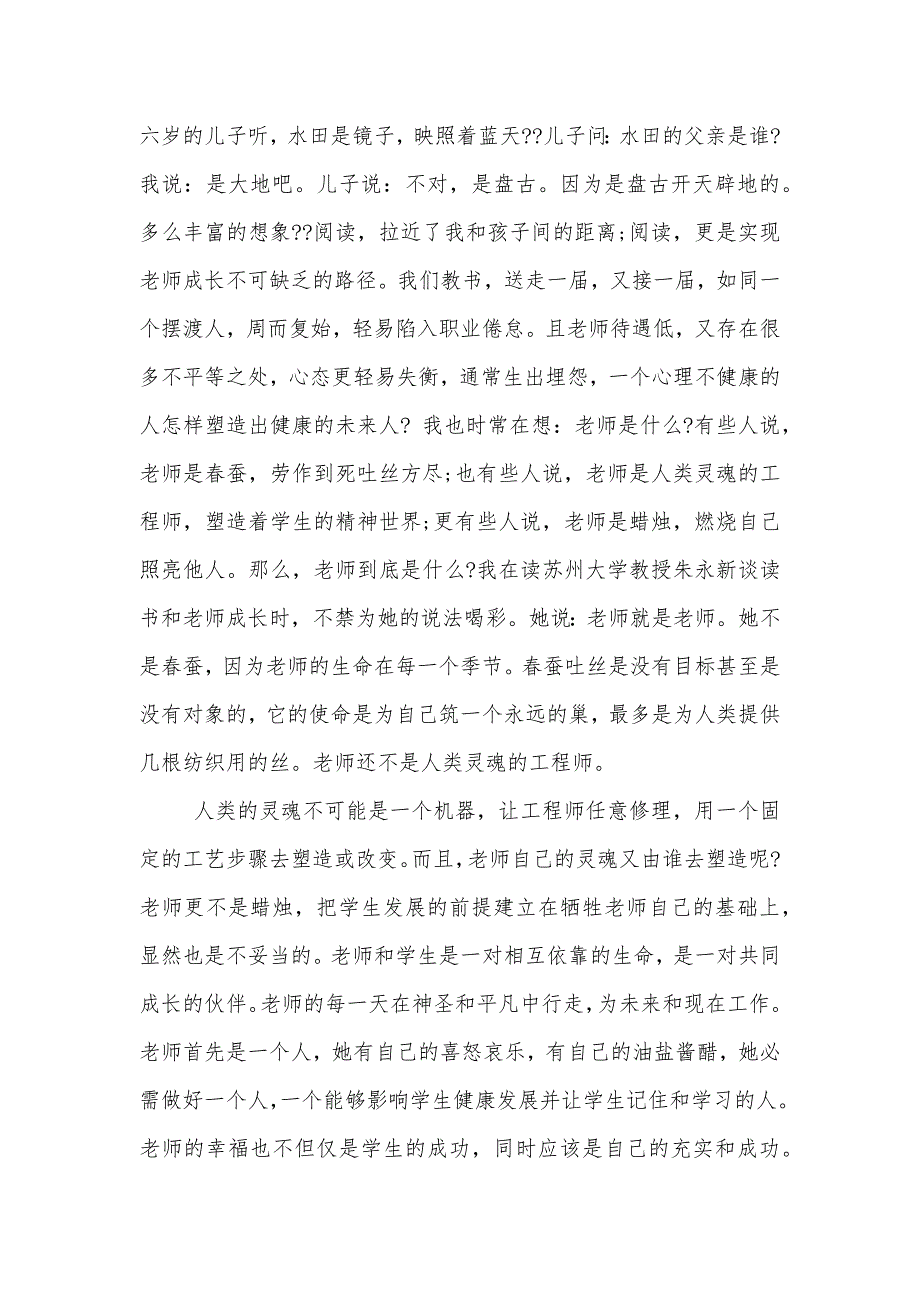 六岁的儿子听，水田是镜子，映照着蓝天??儿子问：水田的父亲是谁?
我说：是大地吧。儿子说：不对，是盘古。因为是盘古开天辟地的。
多么丰富的想象??阅读，拉近了我和孩子间的距离;阅读，更是实现
老师成长不可缺乏的路径。我们教书，送走一届，又接一届，如同一
个摆渡人，周而复始，轻易陷入职业倦怠。且老师待遇低，又存在很
多不平等之处，心态更轻易失衡，通常生出埋怨，一个心理不健康的
人怎样塑造出健康的未来人? 我也时常在想：老师是什么?有些人说，
老师是春蚕，劳作到死吐丝方尽;也有些人说，老师是人类灵魂的工
程师，塑造着学生的精神世界;更有些人说，老师是蜡烛，燃烧自己
照亮他人。那么，老师到底是什么?我在读苏州大学教授朱永新谈读
书和老师成长时，不禁为她的说法喝彩。她说：老师就是老师。她不
是春蚕，因为老师的生命在每一个季节。春蚕吐丝是没有目标甚至是
没有对象的，它的使命是为自己筑一个永远的巢，最多是为人类提供
几根纺织用的丝。老师还不是人类灵魂的工程师。
人类的灵魂不可能是一个机器，让工程师任意修理，用一个固
定的工艺步骤去塑造或改变。而且，老师自己的灵魂又由谁去塑造呢?
老师更不是蜡烛，把学生发展的前提建立在牺牲老师自己的基础上，
显然也是不妥当的。老师和学生是一对相互依靠的生命，是一对共同
成长的伙伴。老师的每一天在神圣和平凡中行走，为未来和现在工作。
老师首先是一个人，她有自己的喜怒哀乐，有自己的油盐酱醋，她必
需做好一个人，一个能够影响学生健康发展并让学生记住和学习的人。
老师的幸福也不但仅是学生的成功，同时应该是自己的充实和成功。